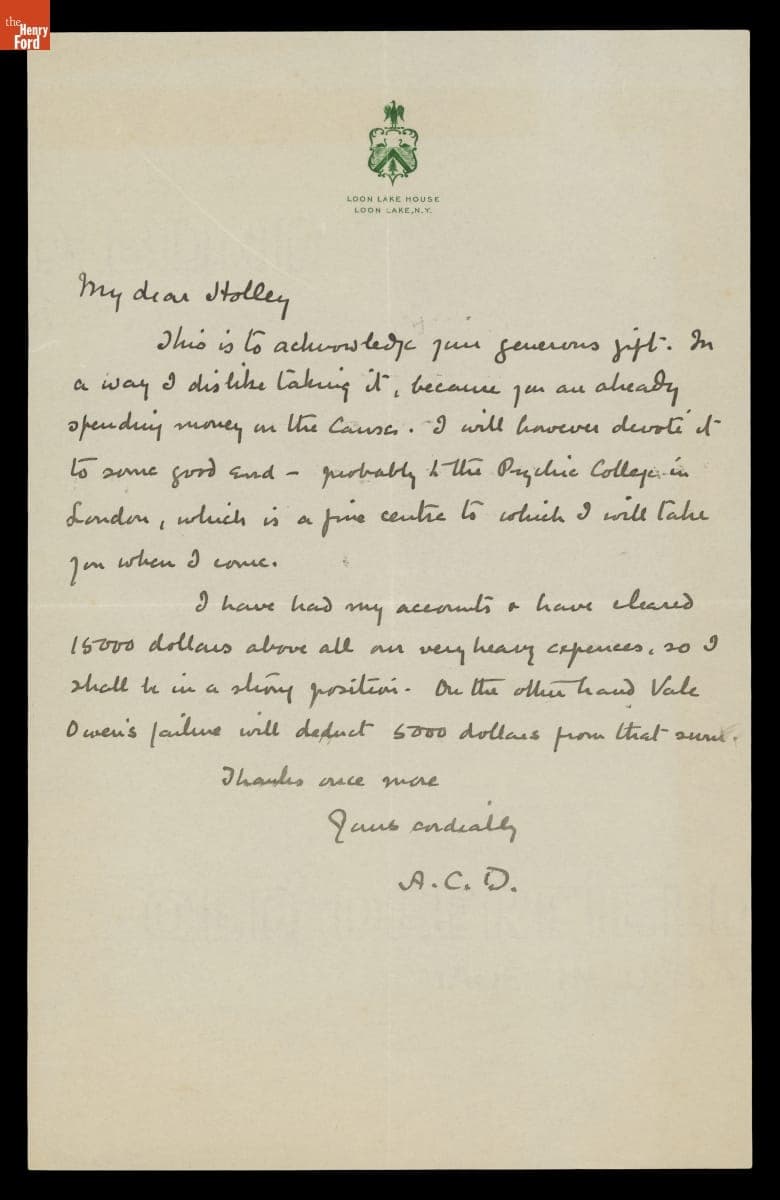 the
Henry
Ford
LOON LAKE HOUSE
LOON LAKE, N.Y.
My dear Holley
This is to acknowledge your generous gift. In
a way I dislike taking it, because you are already
spending money on the Cause. I will however devote it
to some good end – probably to the Psychic College in
London, which is a fine centre to which I will take
you when I come.
I have had my accounts & have cleared
15000 dollars above all our very heavy expences, so I
shall be in a strong position. On the other hand Vale
Owen's failure will deduct 5000 dollars from that sum.
Thanks once more
Yours cordially
A.C.D.